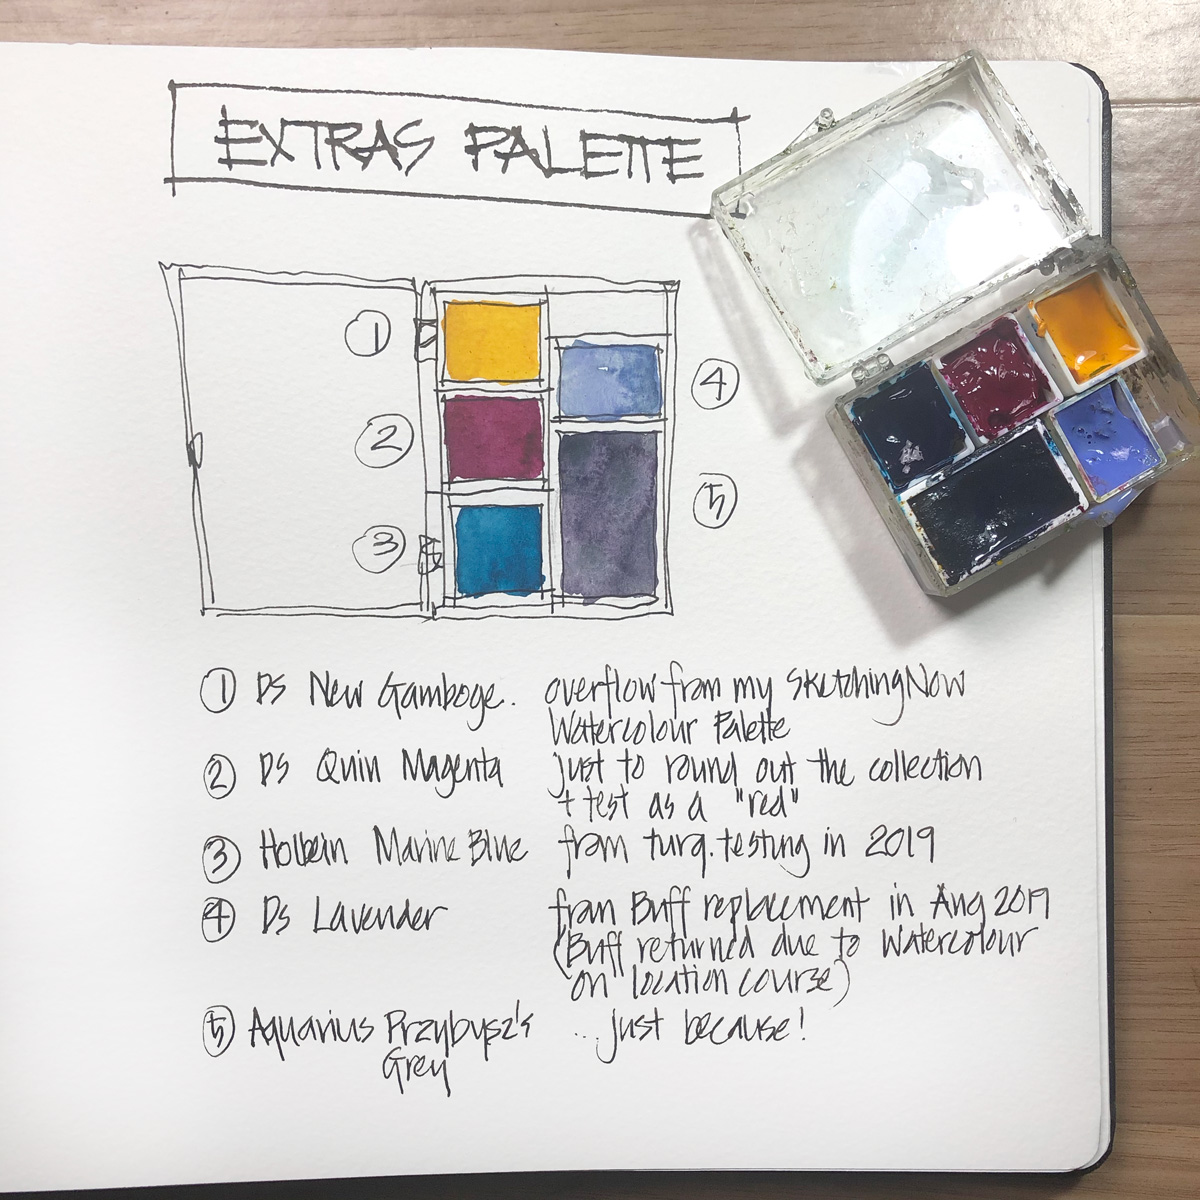 EXTRAS PALETTE
1
2
3
4
5
1 DS New Gamboge. overflow from my SketchingNow
Watercolour Palette
2 DS Quin Magenta just to round out the collection
+ test as a "red"
3 Holbein Marine Blue from turq. testing in 2019
4 DS Lavender from Buff replacement in Aug 2019
(Buff returned due to Watercolour
on location course)
5 Aquarius Przybysz's ...just because!
Grey